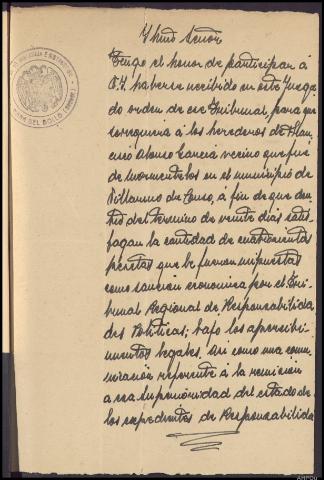 Ylmo Señor
Tengo el honor de participar á
V.I. haberse recibido en este Juzga
do orden de ese Tribunal, para que
se requiera á los herederos de
Alonso Garcia vecino que fué
de en el municipio de
Villarino de Conso, á fin de que den
tro del termino de veinte dias satis
fagan la cantidad de cuatrocientas
pesetas que le fueron impuestas
como sancion economica por el Tri
bunal Regional de Responsabilida
des Politicas; bajo los apercibi
mientos legales. Asi como una comu
nicación referente á la remision
a esa Superioridad del estado de
los expedientes de Responsabilida
VIANA DEL BOLLO (ORENSE)